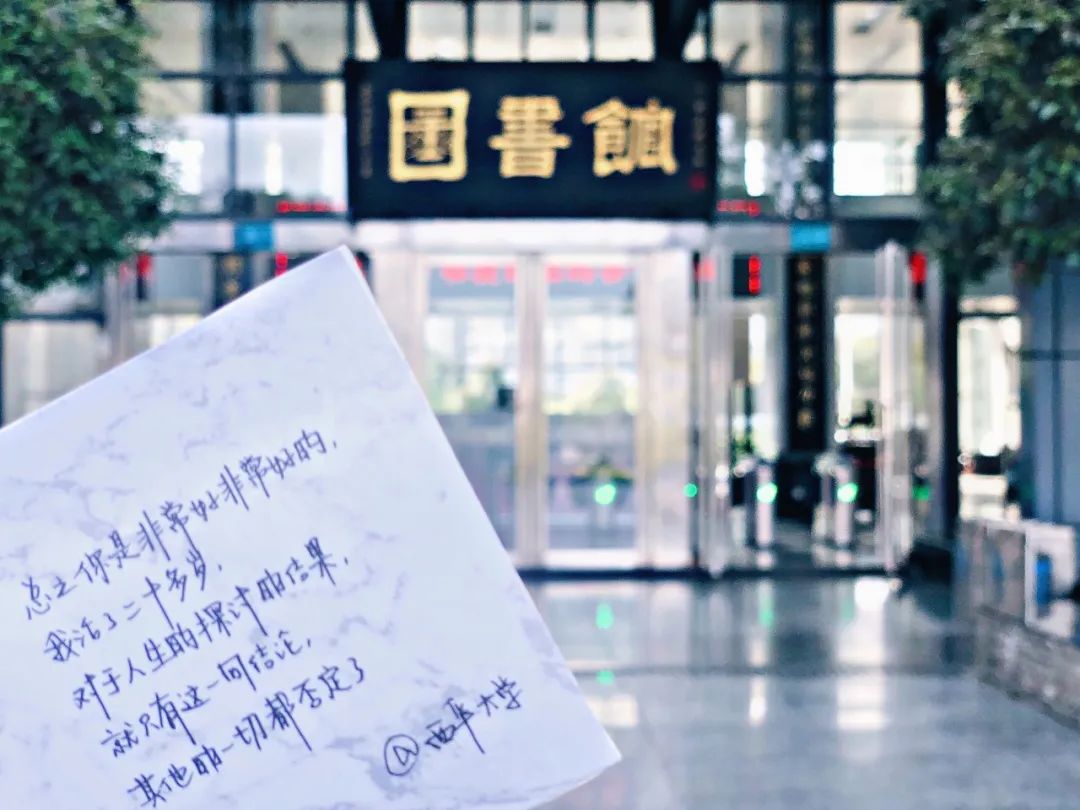 圖書館
总之你是非常好非常好的，
我活了二十多岁，
对于人生的探讨的结果，
就只有这一句结论，
其他的一切都否定了
@西华大学